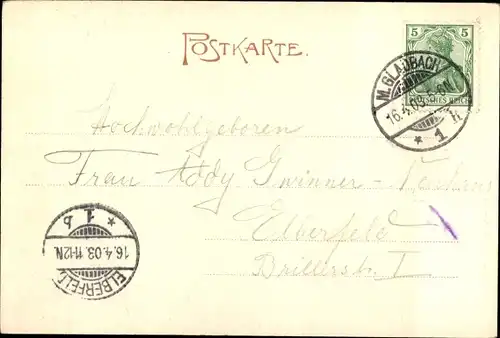 POSTKARTE.
5 5
DEUTSCHES REICH
M. GLADBACH
16.4.03. 5-6N.
* 1 k
Hochwohlgeboren
Frau Addy Gwinner-
Elberfeld
Brillerstr. I
* 1 b
16.4.03.11-12N.
ELBERFELD